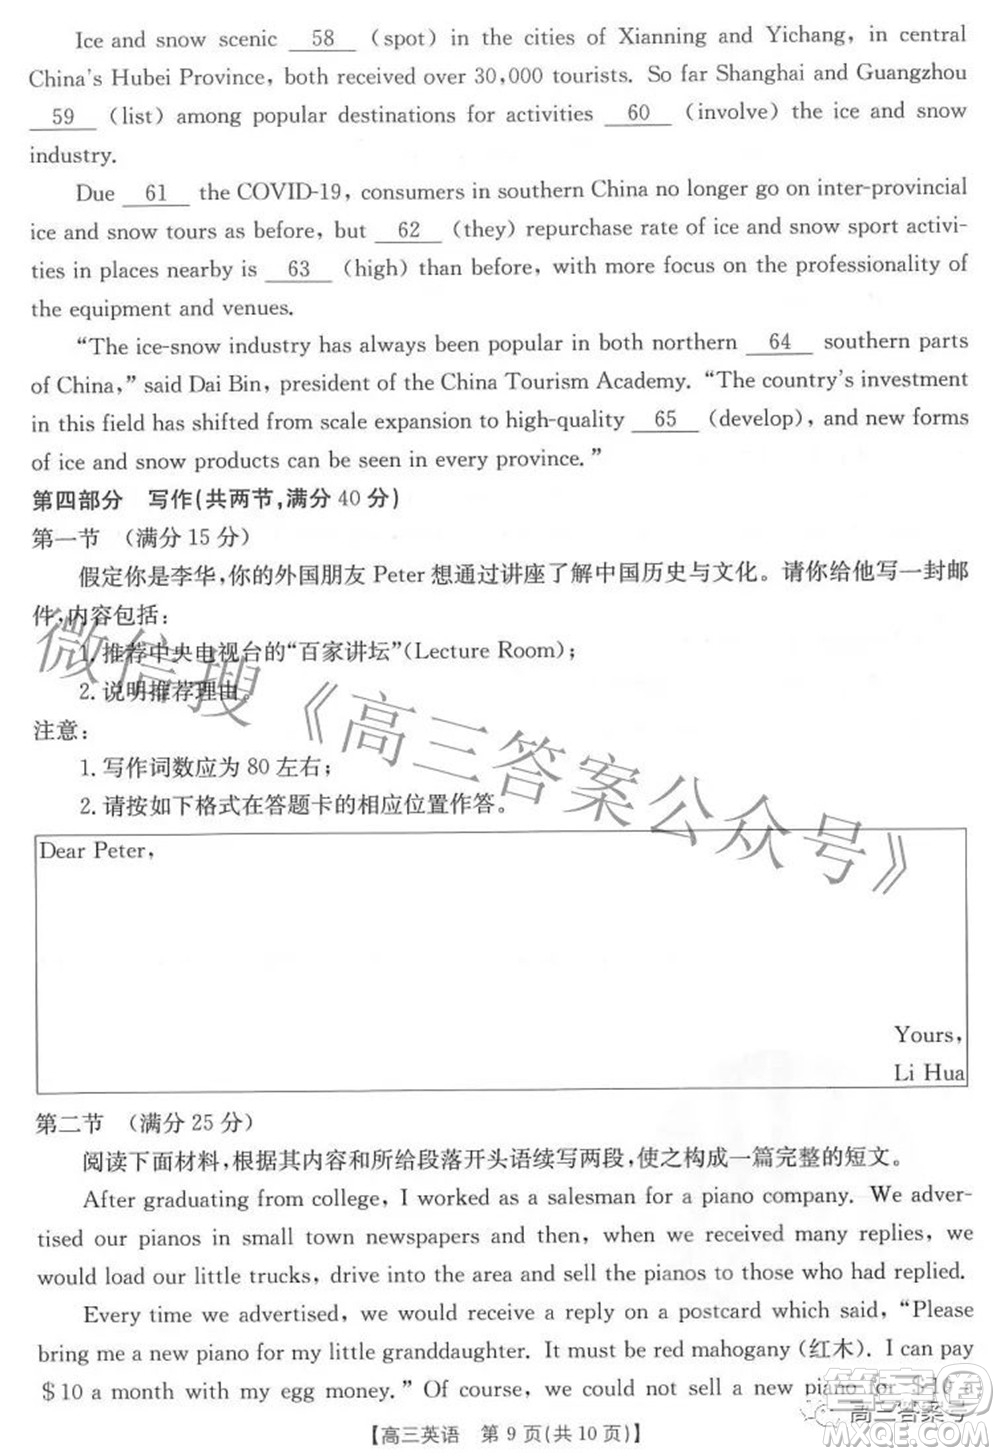 Ice and snow scenic 58 (spot) in the cities of Xianning and Yichang, in central
China's Hubei Province, both received over 30,000 tourists. So far Shanghai and Guangzhou
59 (list) among popular destinations for activities 60 (involve) the ice and snow
industry.
Due 61 the COVID-19, consumers in southern China no longer go on inter-provincial
ice and snow tours as before, but 62 (they) repurchase rate of ice and snow sport activi-
ties in places nearby is 63 (high) than before, with more focus on the professionality of
the equipment and venues.
“The ice-snow industry has always been popular in both northern 64 southern parts
of China,” said Dai Bin, president of the China Tourism Academy. “The country's investment
in this field has shifted from scale expansion to high-quality 65 (develop), and new forms
of ice and snow products can be seen in every province.”
第四部分 写作(共两节,满分 40 分)
第一节 (满分 15 分)
假定你是李华,你的外国朋友 Peter 想通过讲座了解中国历史与文化。请你给他写一封邮
件,内容包括:
1. 推荐中央电视台的“百家讲坛”(Lecture Room);
2. 说明推荐理由。
注意:
1. 写作词数应为 80 左右;
2. 请按如下格式在答题卡的相应位置作答。
Dear Peter,
Yours,
Li Hua
微信搜《高三答案公众号》
第二节 (满分 25 分)
阅读下面材料,根据其内容和所给段落开头语续写两段,使之构成一篇完整的短文。
After graduating from college, I worked as a salesman for a piano company. We adver-
tised our pianos in small town newspapers and then, when we received many replies, we
would load our little trucks, drive into the area and sell the pianos to those who had replied.
Every time we advertised, we would receive a reply on a postcard which said, “Please
bring me a new piano for my little granddaughter. It must be red mahogany (红木). I can pay
$10 a month with my egg money.” Of course, we could not sell a new piano for $10 a
【高三英语 第 9 页(共 10 页)】
高三答案号
答案圈
MXQE.COM